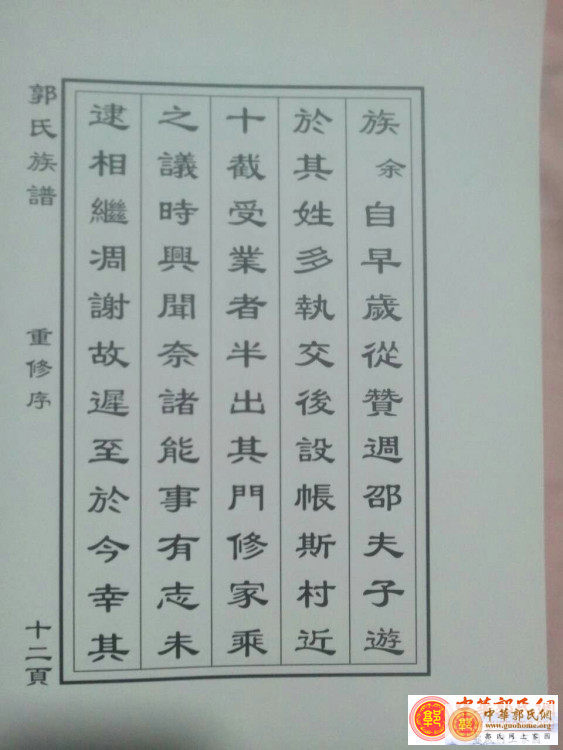 族余自早歲從贊週邵夫子遊
於其姓多執交後設帳斯村近
十截受業者半出其門修家乘
之議時興聞奈諸能事有志未
逮相繼凋謝故遲至於今幸其
郭氏族譜
重修序
十二頁
中華郭氏網
中華郭氏網
www.guohome.org
郭氏网上家园